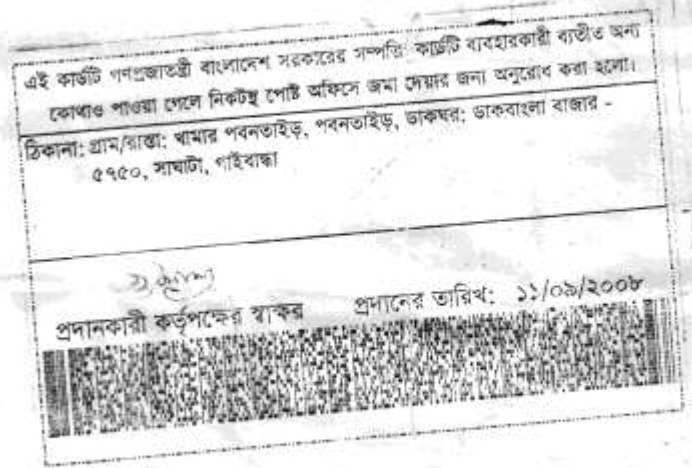 এই কার্ডটি গণপ্রজাতন্ত্রী বাংলাদেশ সরকারের সম্পত্তি। কার্ডটি ব্যবহারকারী ব্যতীত অন্য
কোথাও পাওয়া গেলে নিকটস্থ পোষ্ট অফিসে জমা দেয়ার জন্য অনুরোধ করা হলো।
ঠিকানা: গ্রাম/রাস্তা: খামার পবনতাইড়, পবনতাইড়, ডাকঘর: ডাকবাংলা বাজার -
৫৭৫০, সাঘাটা, গাইবান্ধা
প্রদানকারী কর্তৃপক্ষের স্বাক্ষর প্রদানের তারিখ: ১১/০৯/২০০৮